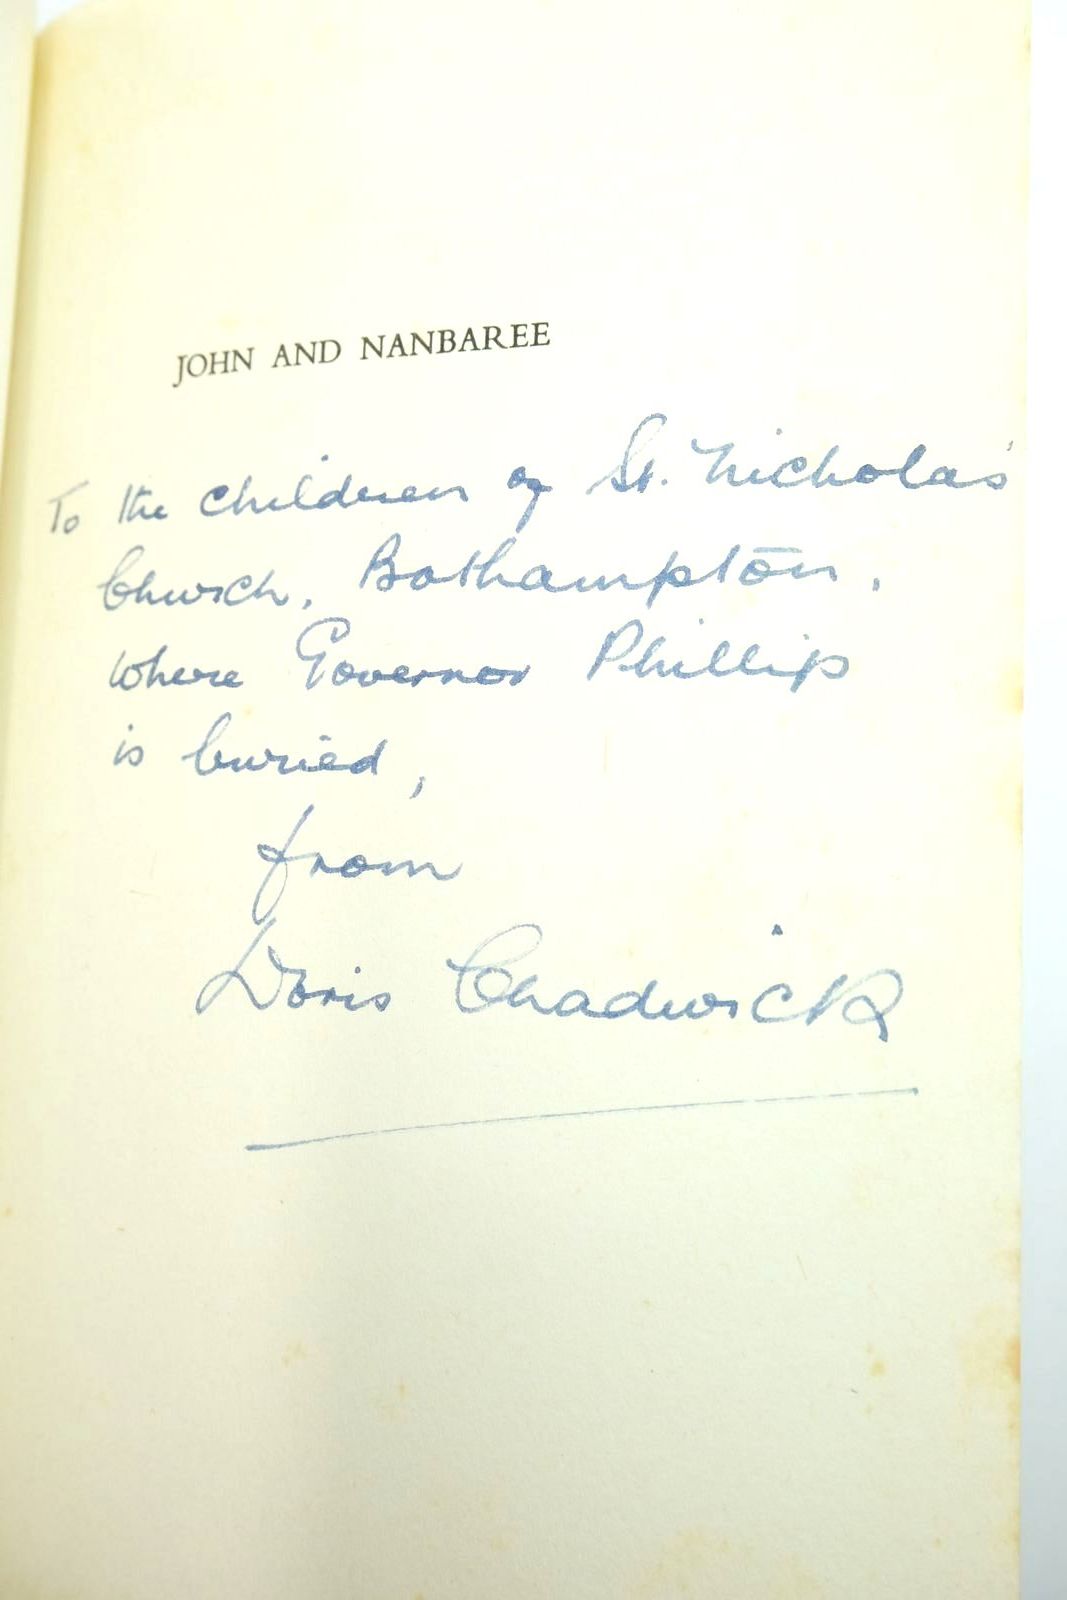 JOHN AND NANBAREE
To the children of St. Nicholas'
Church, Bathampton,
where Governor Phillip
is buried,
from
Doris Chadwick